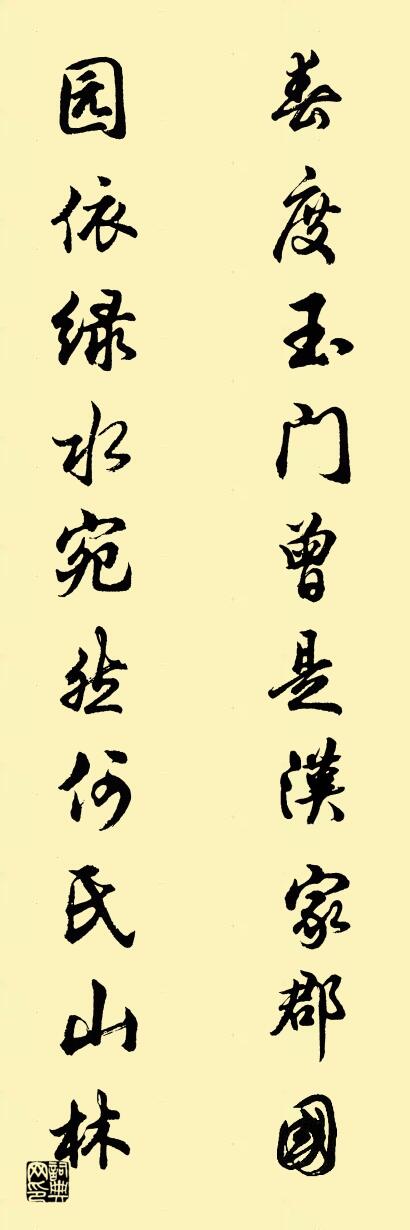 春度玉门曾是漢家郡國
园依绿水宛然何氏山林
詞典网印